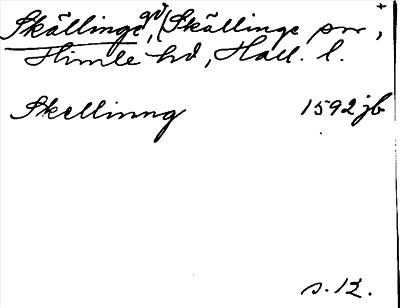 Skällinge gd, (Skällinge sn,
Himle hd, Hall. l.
Skellinng 1592 jb
s. 12.